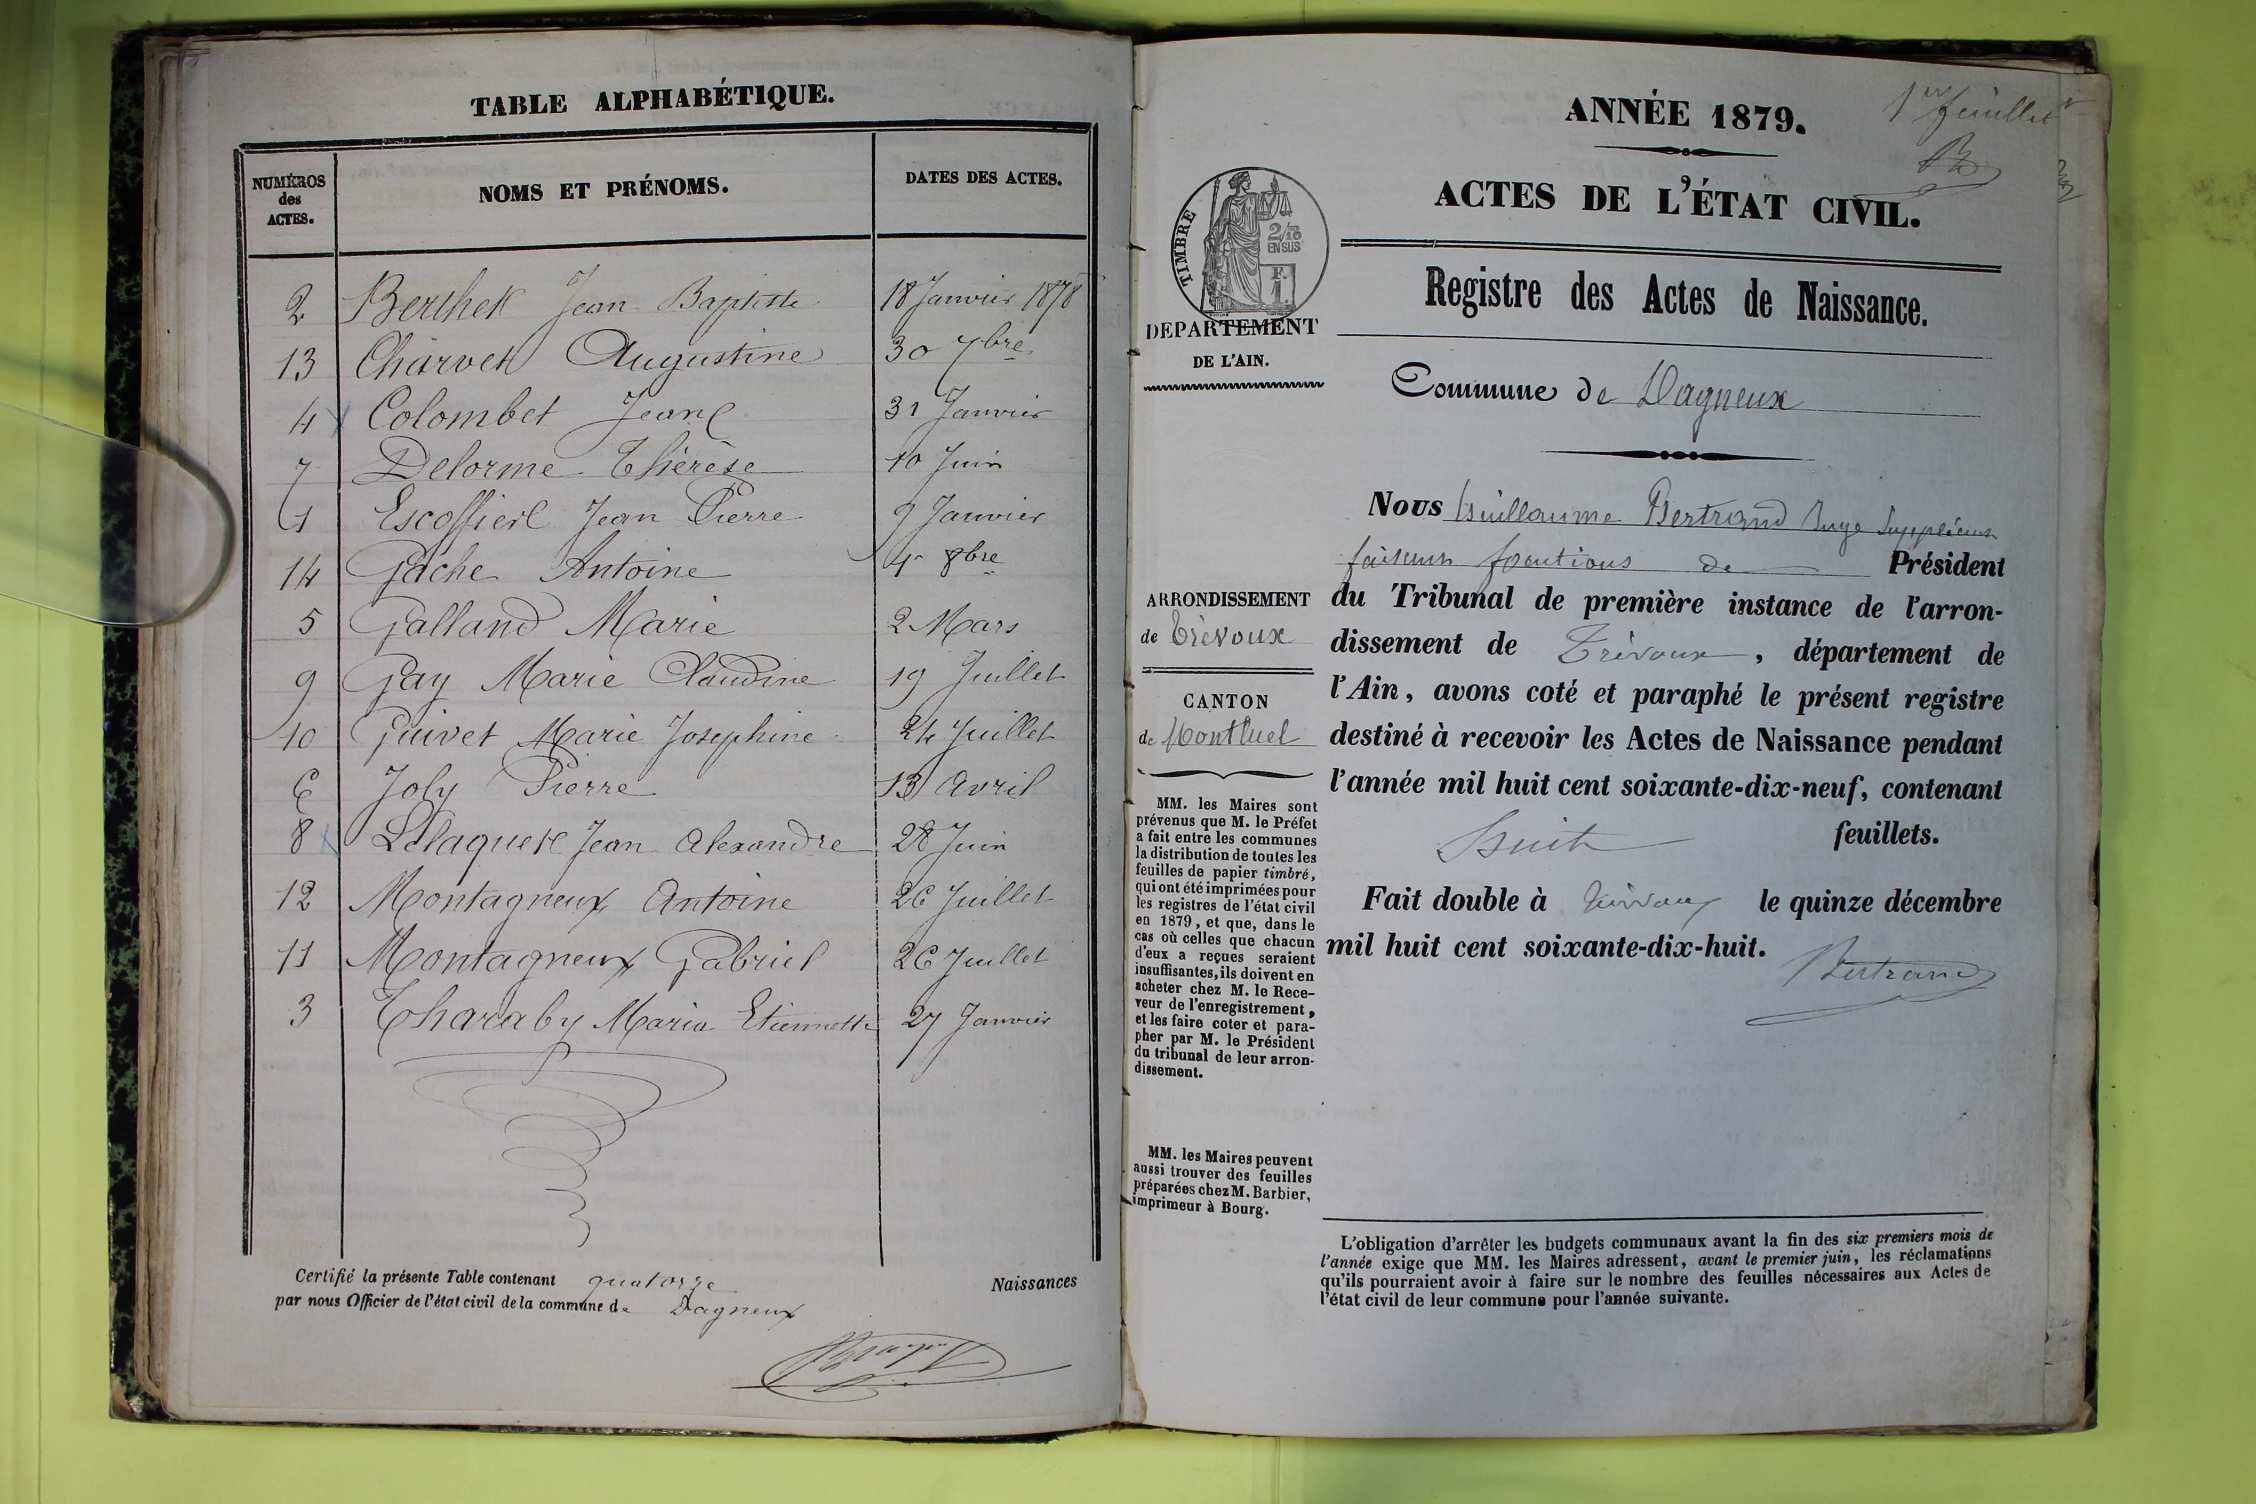 TABLE ALPHABÉTIQUE.
NUMÉROS des ACTES. NOMS ET PRÉNOMS. DATES DES ACTES.
2 Berthet Jean Baptiste 18 Janvier 1878
13 Charvet Augustine 30 7bre
4 Colombet Jean 31 Janvier
7 Delorme Thérèse 10 Juin
1 Escoffier Jean Pierre 9 Janvier
14 Gâche Antoine 4 8bre
5 Galland Marie 2 Mars
9 Gay Marie Claudine 19 Juillet
10 Guivet Marie Josephine 24 Juillet
6 Joly Pierre 13 avril
8 Jean Alexandre 28 Juin
12 Montagneux Antoine 26 Juillet
11 Montagneux Gabriel 26 Juillet
3 Tharaby Maria Etiennette 27 Janvier
Certifié la présente Table contenant quatorze Naissances
par nous Officier de l'état civil de la commune de Dagneux
1er feuillet
ANNÉE 1879.
ACTES DE L'ÉTAT CIVIL.
TIMBRE
2/10
EN SUS
F.
1.
Registre des Actes de Naissance.
DEPARTEMENT
DE L'AIN.
Commune de Dagneux
Nous Guillaume Bertrand Juge Suppléant
faisant fonctions de Président
du Tribunal de première instance de l'arron-
dissement de Trévoux, département de
l'Ain, avons coté et paraphé le présent registre
destiné à recevoir les Actes de Naissance pendant
l'année mil huit cent soixante-dix-neuf, contenant
huit feuillets.
Fait double à Trévoux le quinze décembre
mil huit cent soixante-dix-huit.
Bertrand
ARRONDISSEMENT
de Trévoux
CANTON
de Montluel
MM. les Maires sont
prévenus que M. le Préfet
a fait entre les communes
la distribution de toutes les
feuilles de papier timbré,
qui ont été imprimées pour
les registres de l'état civil
en 1879, et que, dans le
cas où celles que chacun
d'eux a reçues seraient
insuffisantes, ils doivent en
acheter chez M. le Rece-
veur de l'enregistrement,
et les faire coter et para-
pher par M. le Président
du tribunal de leur arron-
dissement.
MM. les Maires peuvent
aussi trouver des feuilles
préparées chez M. Barbier,
imprimeur à Bourg.
L'obligation d'arrêter les budgets communaux avant la fin des six premiers mois de
l'année exige que MM. les Maires adressent, avant le premier juin, les réclamations
qu'ils pourraient avoir à faire sur le nombre des feuilles nécessaires aux Actes de
l'état civil de leur commune pour l'année suivante.